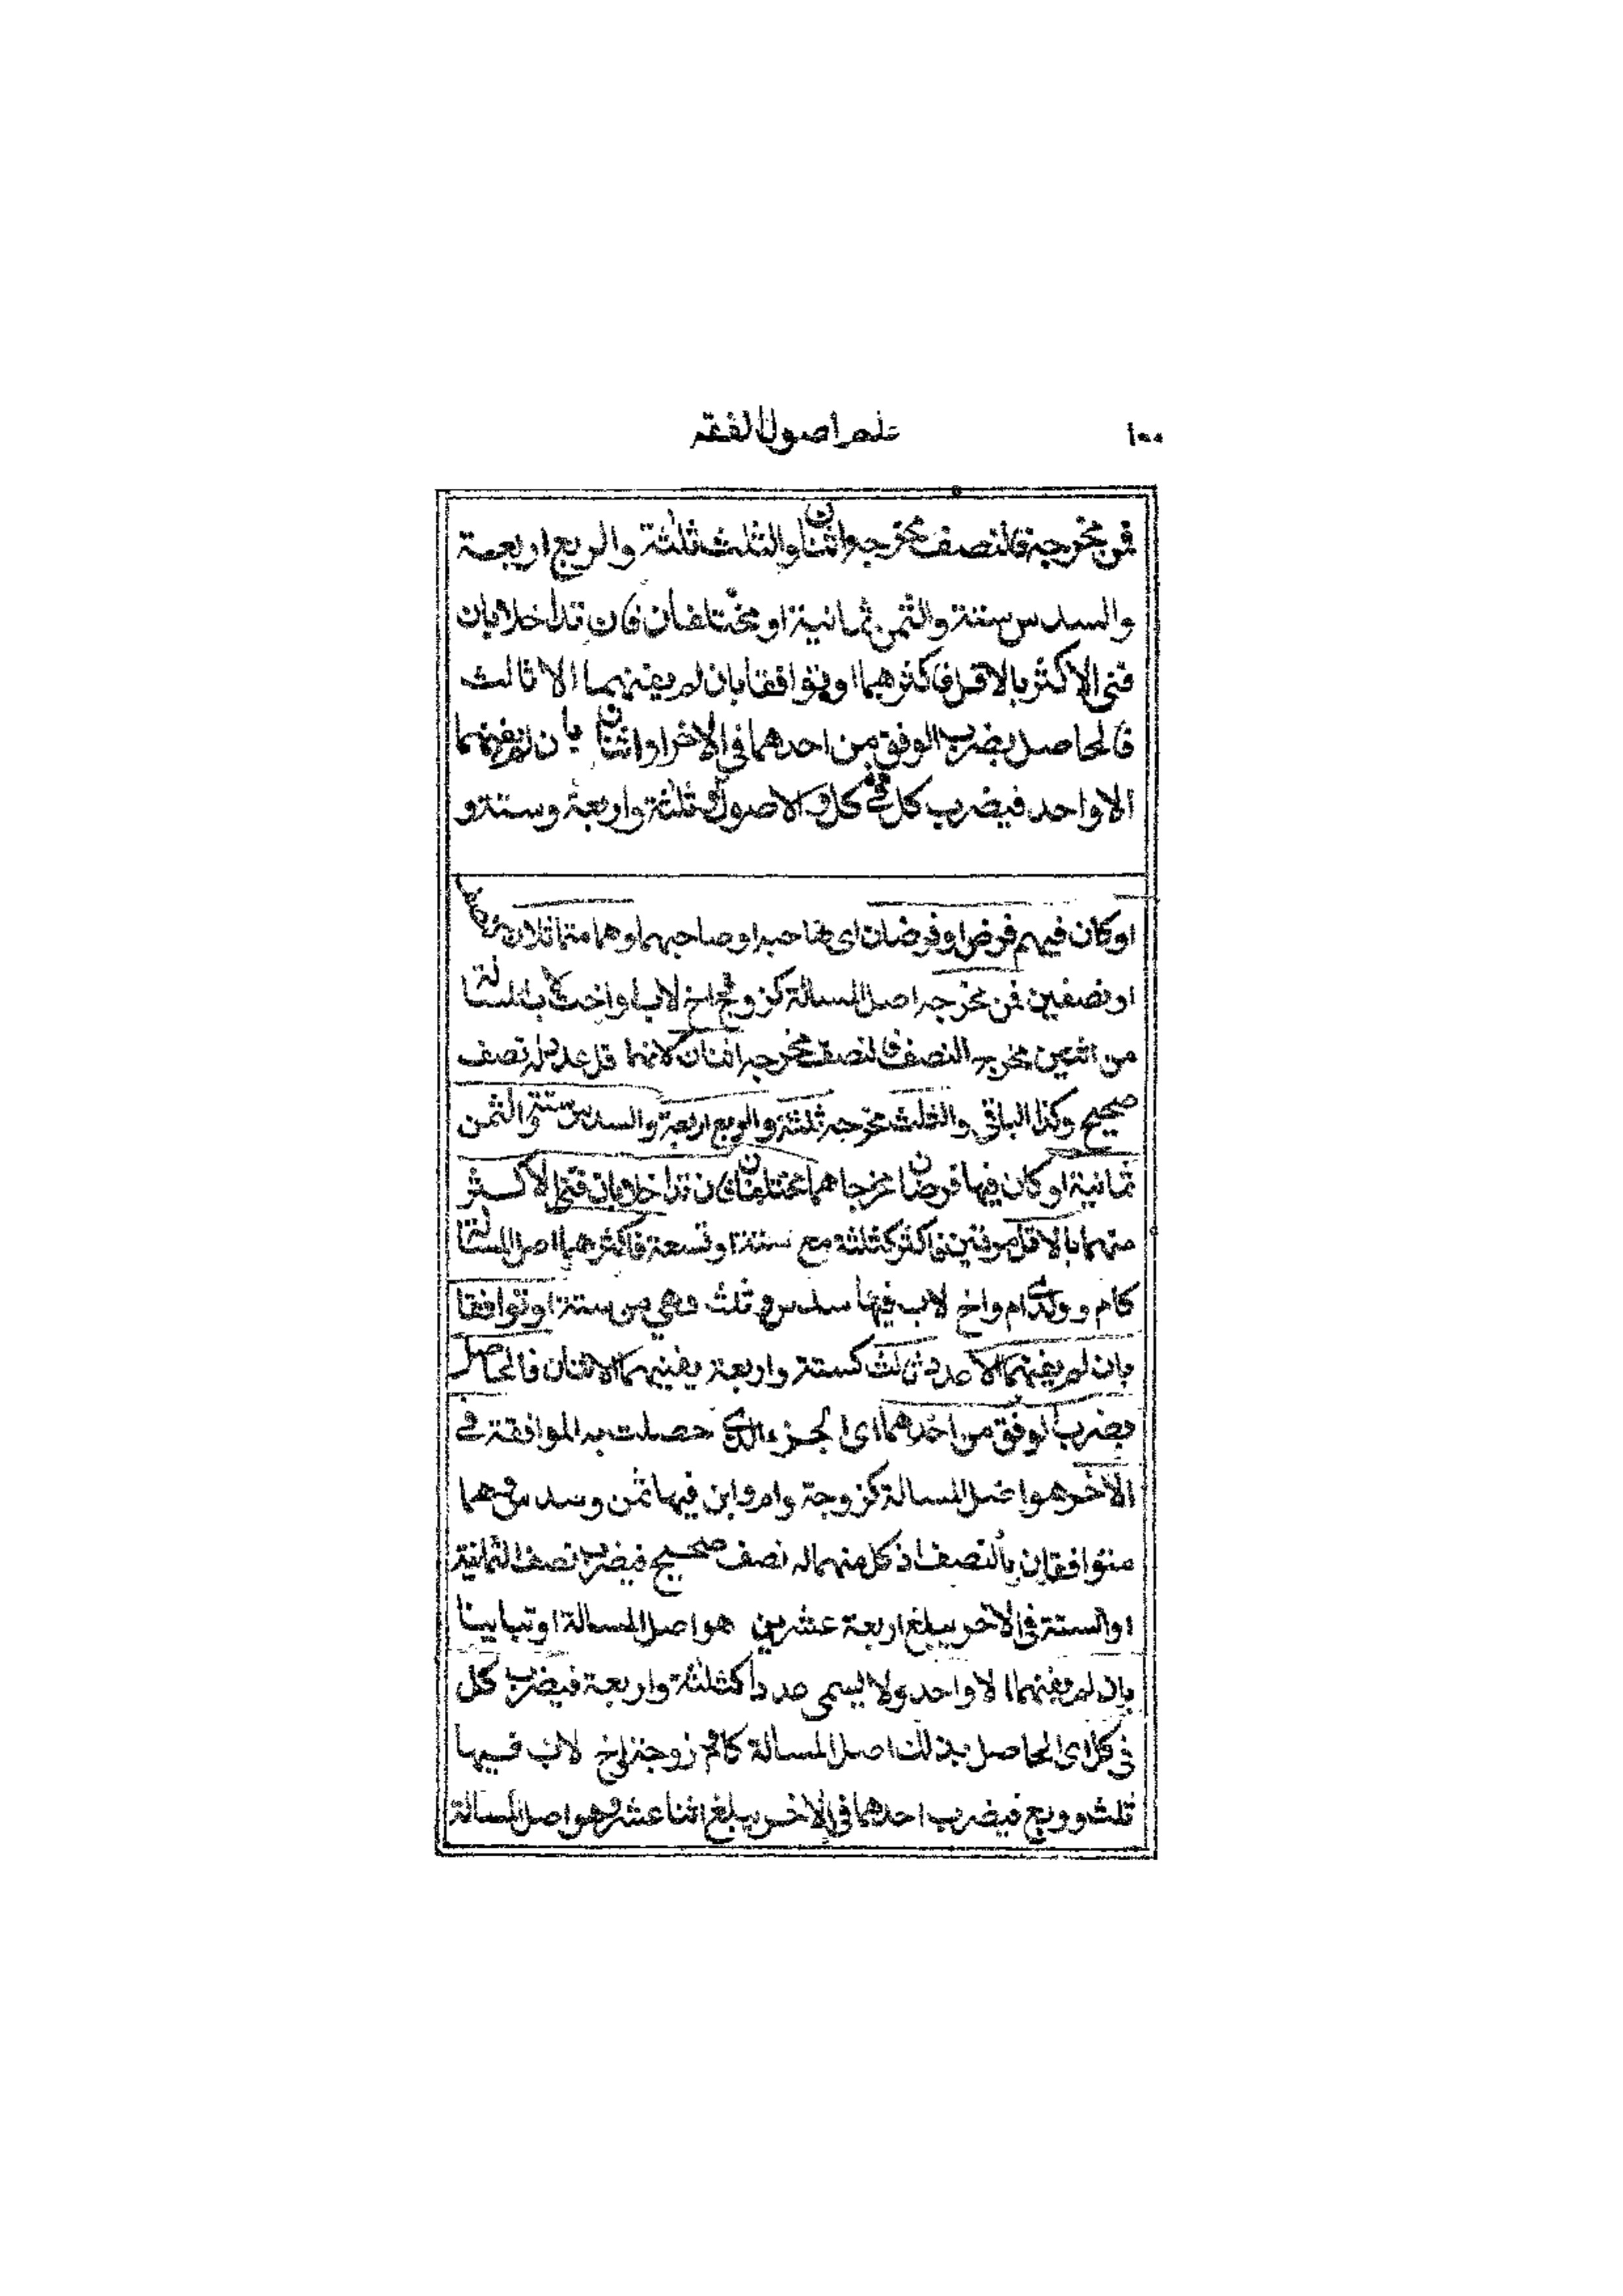 ١٠٠
علم اصول الفقه
فمن مخرجه فالنصف مخرجه اثنان والثلث ثلثة والربع اربعة
والسدس ستة والثمن ثمانية او مختلفان فان تداخلا بان
فنى الاكثر بالاقل فاكثرهما او توافقا بان لم يفنهما الا ثالث
فالحاصل بضرب الوفق من احدهما فى الاخر او بان لم يفنهما
الا واحد فيضرب كل فى كل والاصول ثلثة واربعة وستة و
او كان فيهم فرض او فرضان اى صاحبه او صاحبهما وهما متماثلان
او نصفين فمن مخرجه اصل المسالة كزوج واخ لاب او اخت لاب المسالة
من اثنين مخرج النصف فالنصف مخرجه اثنان لانهما اقل عدد له نصف
صحيح وكذا الباقى والثلث مخرجه ثلثة والربع اربعة والسدس ستة والثمن
ثمانية او كان فيها فرضان مخرجاهما مختلفان فان تداخلا بان فنى الاكثر
منهما بالاقل مرتين فاكثر كثلثة مع ستة او تسعة فاكثرهما اصل المسالة
كام وولدى ام واخ لاب فيها سدس وثلث وهى من ستة او توافقا
بان لم يفنهما الا عدد ثالث كستة واربعة يفنيهما الاثنان فالحاصل
بضرب الوفق من احدهما اى الجزء الذى حصلت به الموافقة فى
الاخر هو اصل المسالة كزوجة وام وابن فيها ثمن وسدس وهما
متوافقان بالنصف اذ كل منهما له نصف صحيح فيضرب نصف الثمانية
او الستة فى الاخر يبلغ اربعة عشرين هو اصل المسالة او تباينا
بان لم يفنهما الا واحد ولا يسمى عددا كثلثة واربعة فيضرب كل
فى كل اى الحاصل بذلك اصل المسالة كام وزوجة واخ لاب فيها
ثلث وربع فيضرب احدهما فى الاخر يبلغ اثنا عشر وهو اصل المسالة